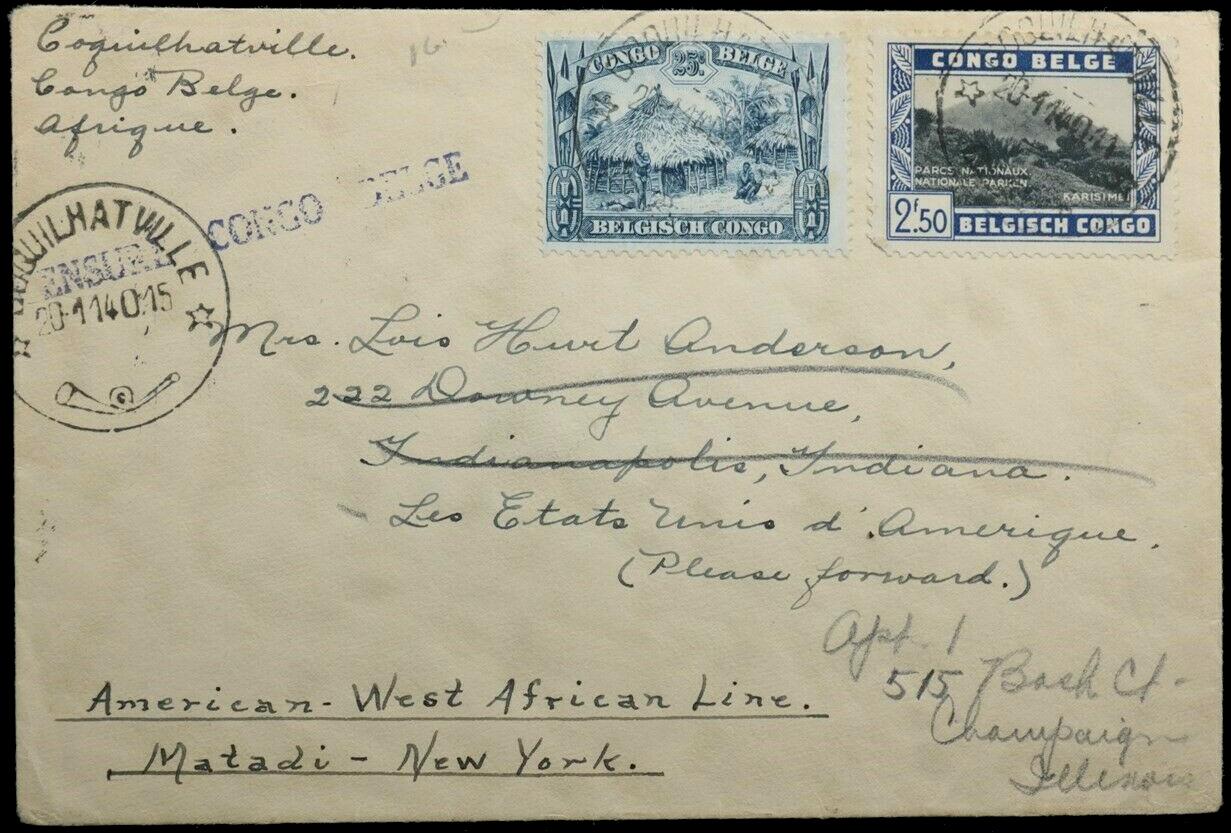 Coquilhatville.
Congo Belge.
Afrique.
CONGO BELGE
25c
BELGISCH CONGO
CONGO BELGE
PARCS NATIONAUX
NATIONALE PARKEN
KARISIMBI
2f50
BELGISCH CONGO
COQUILHATVILLE
20-1 1401
COQUILHATVILLE
20-1 1401 15
CENSURE CONGO BELGE
Mrs. Lois Hurt Anderson,
222 Downey Avenue,
Indianapolis, Indiana.
Les Etats Unis d'Amerique.
(Please forward.)
Apt. 1
515 Bash Ct.
Champaign
Illinois
American-West African Line.
Matadi - New York.